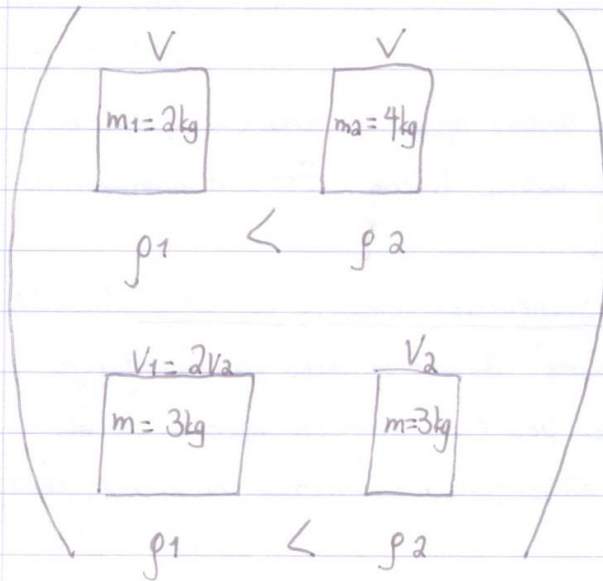 V V
m1=2kg m2=4kg
ρ1 < ρ2
V1=2V2 V2
m=3kg m=3kg
ρ1 < ρ2